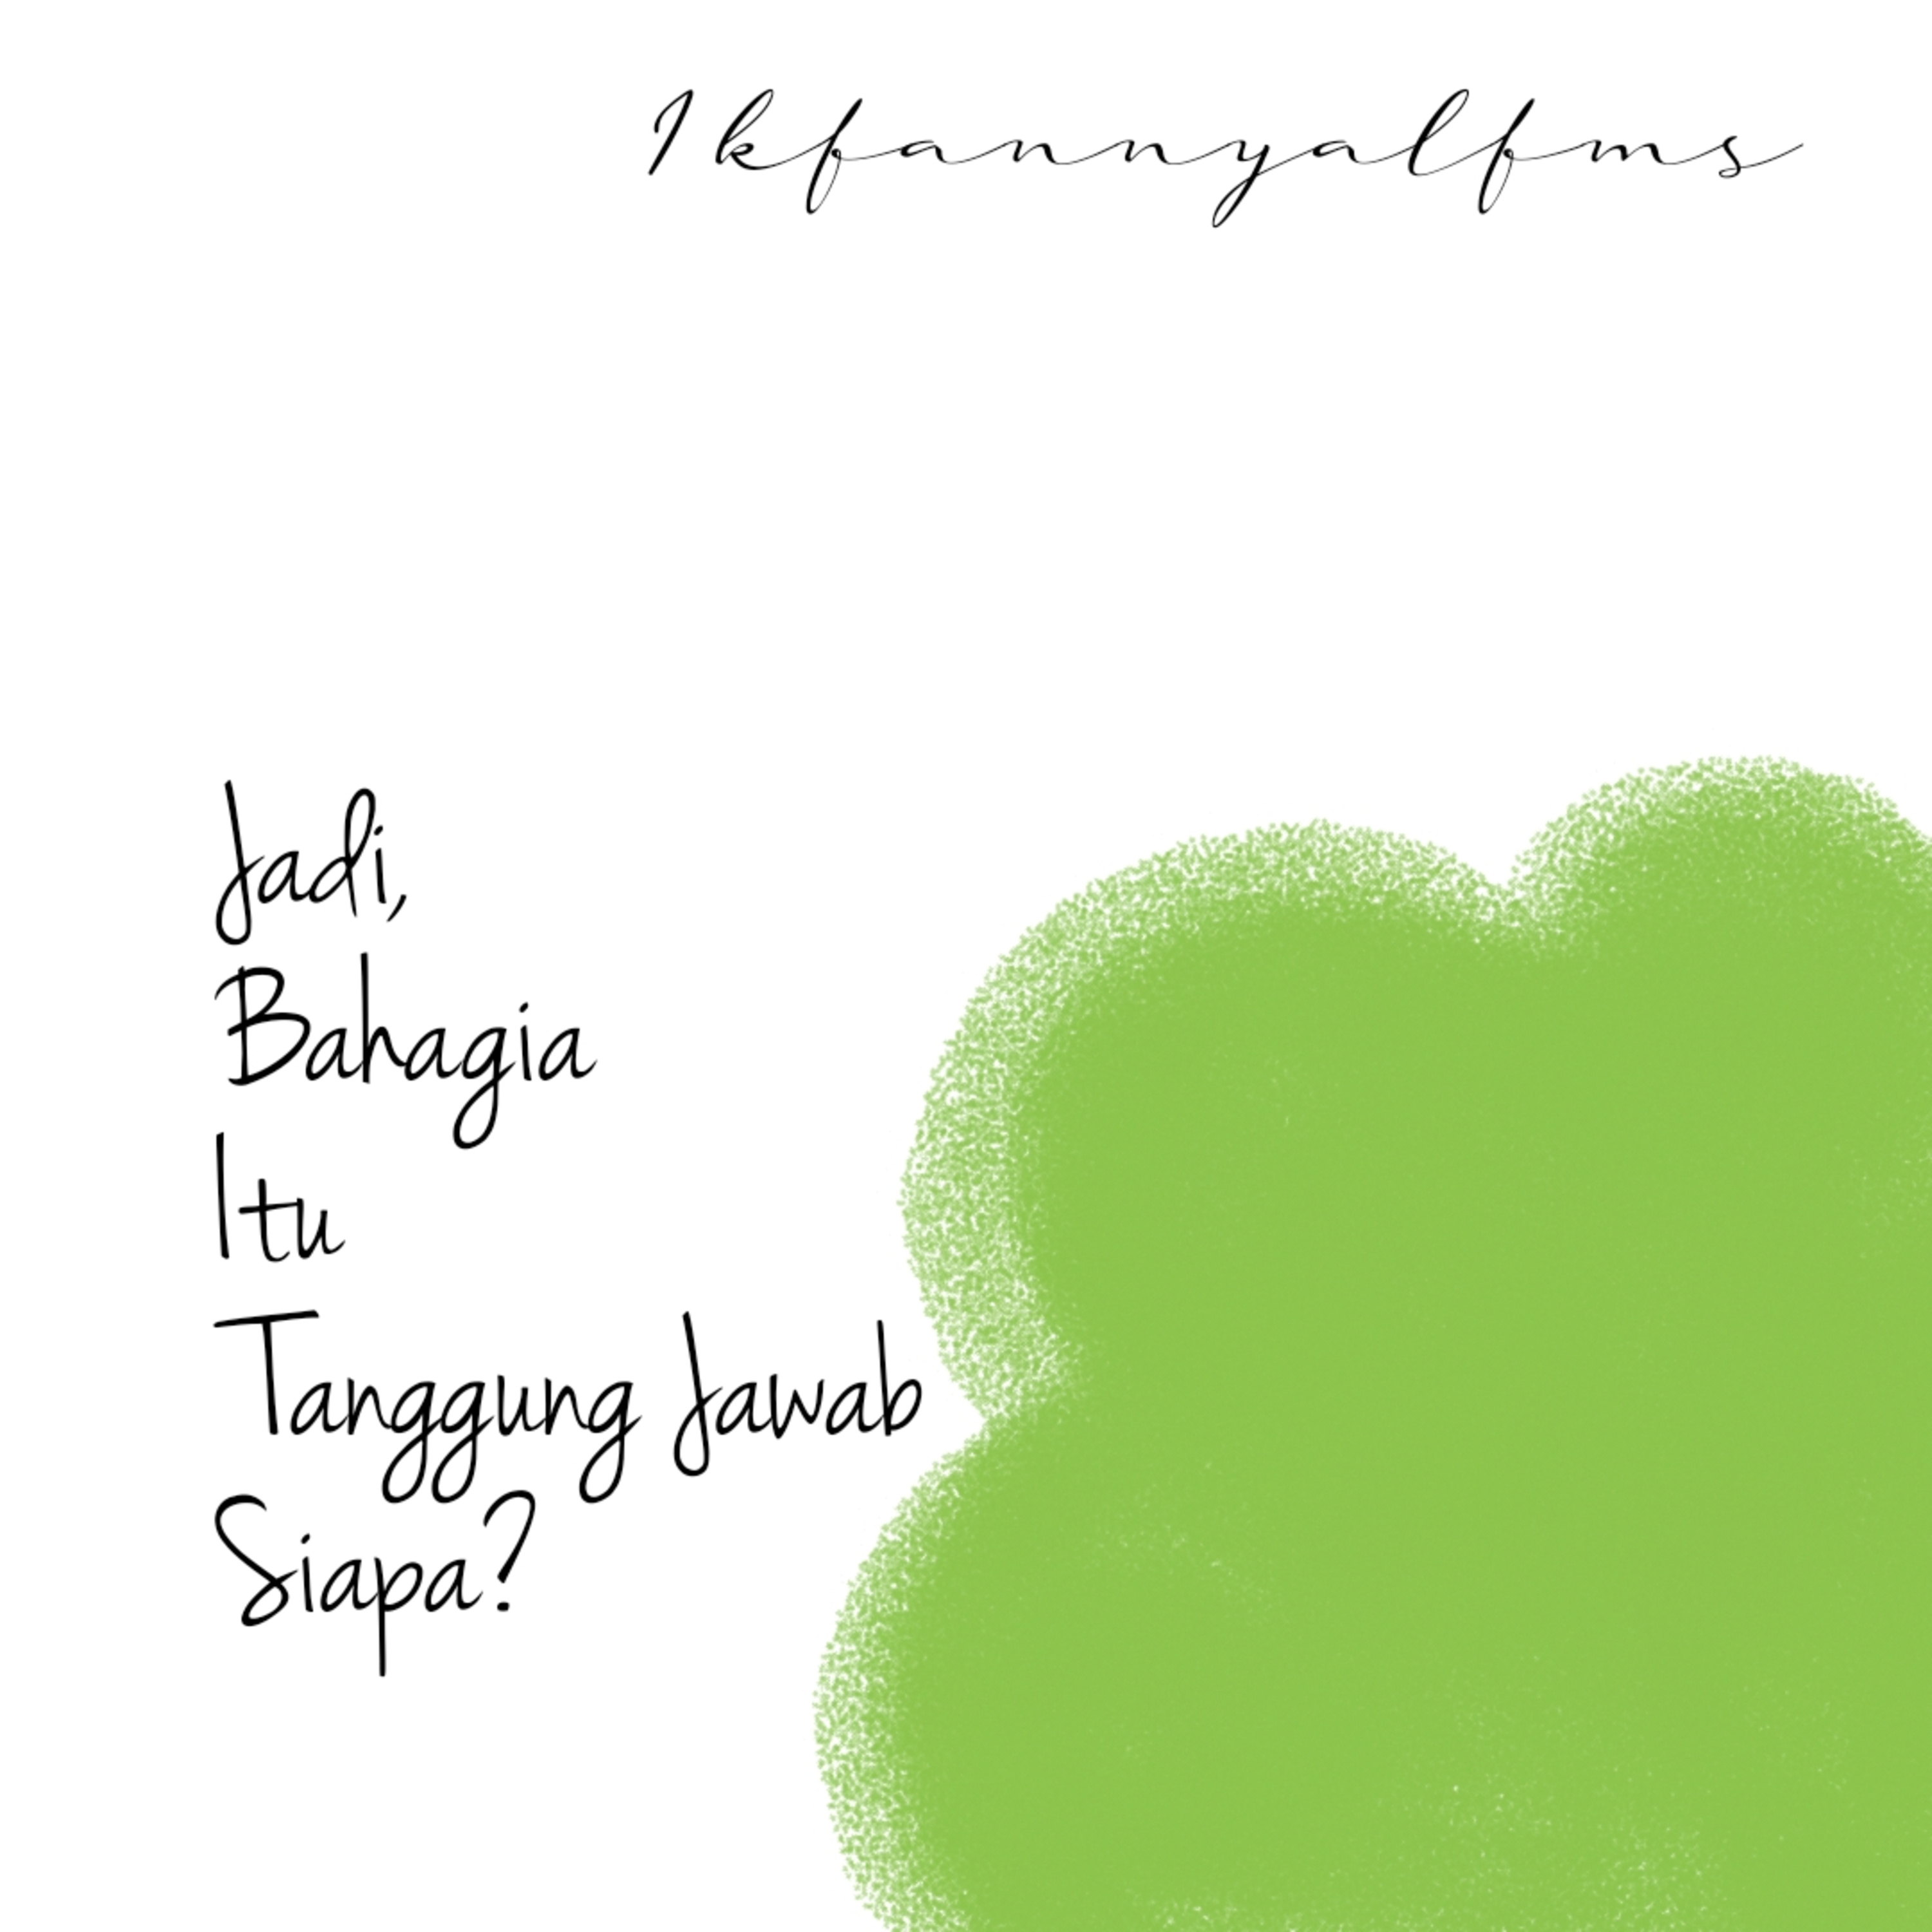 Ikfannyalfms
Jadi,
Bahagia
Itu
Tanggung Jawab
Siapa?